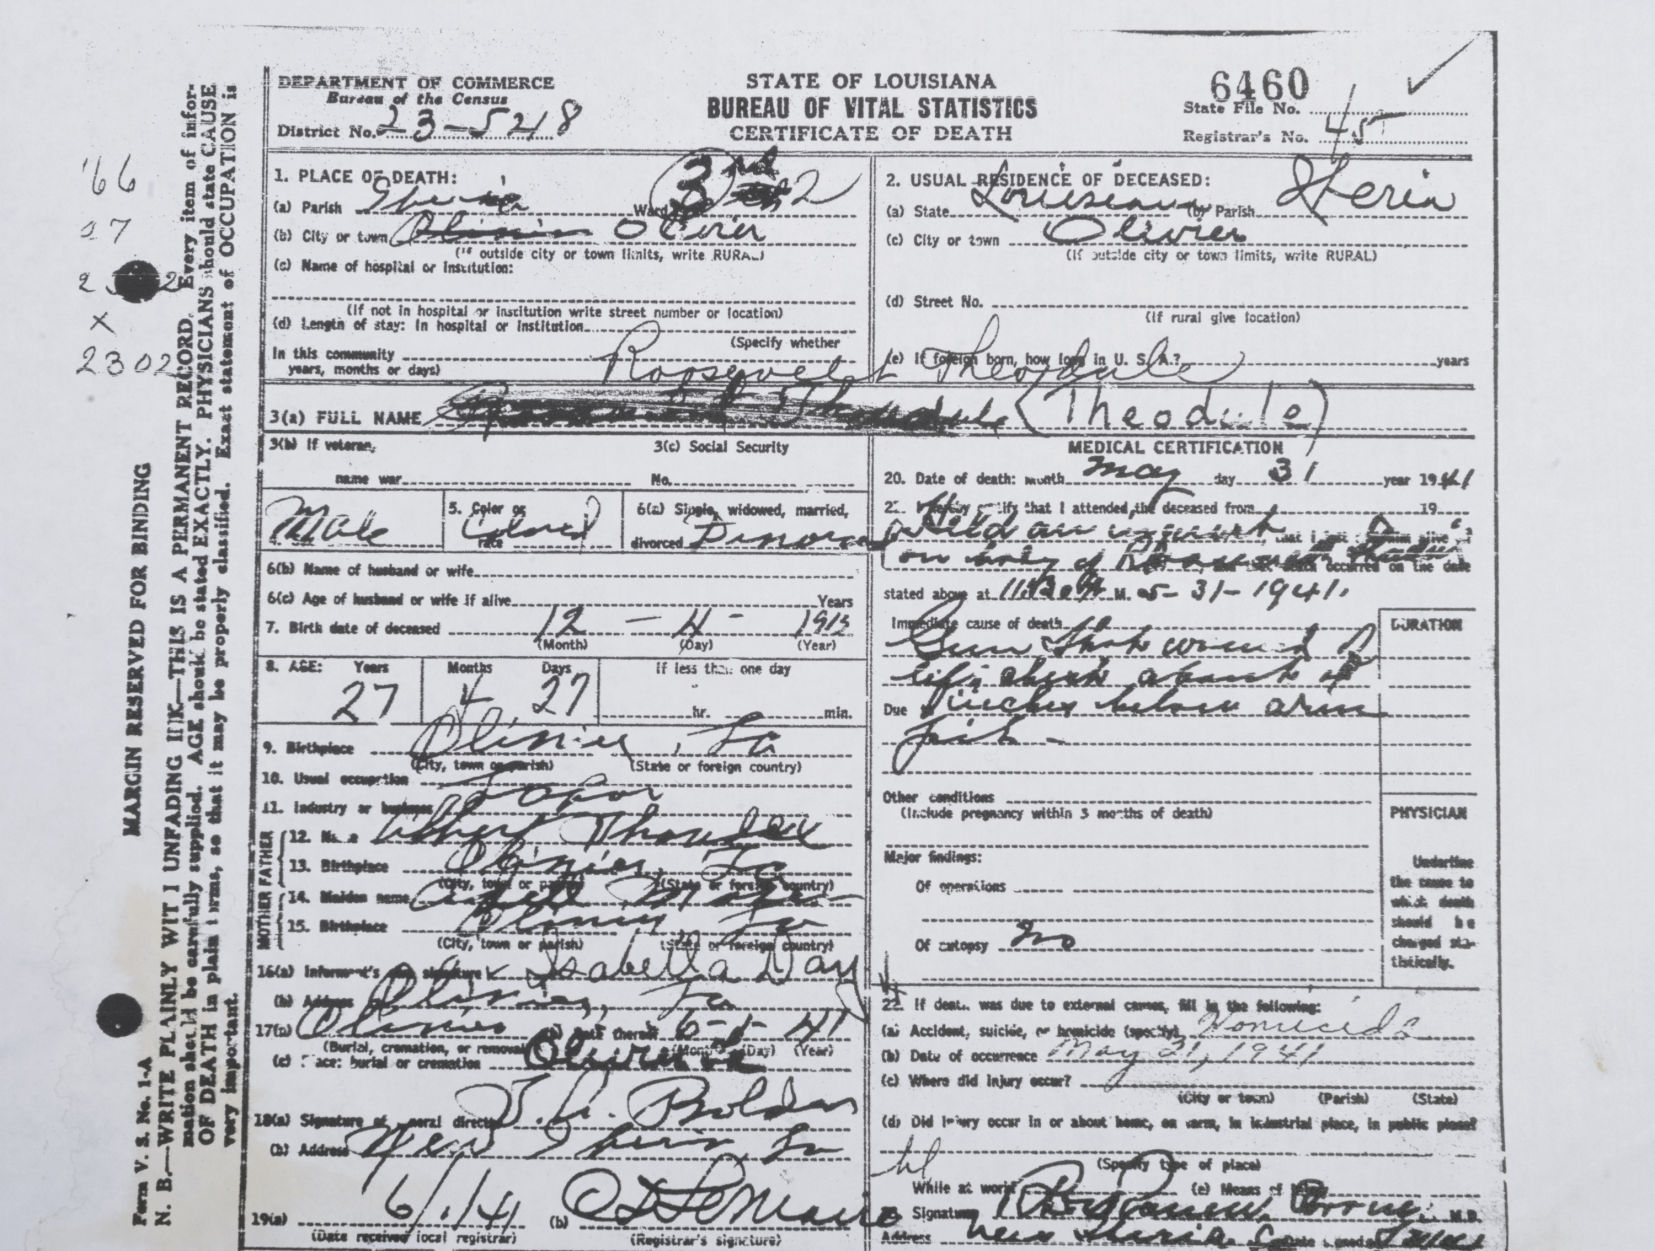 DEPARTMENT OF COMMERCE
Bureau of the Census
District No. 23-5248
STATE OF LOUISIANA
BUREAU OF VITAL STATISTICS
CERTIFICATE OF DEATH
6460
State File No.
Registrar's No. 45
'66
2302
MARGIN RESERVED FOR BINDING
Form V. S. No. 1-A
N. B.—WRITE PLAINLY WIT I UNFADING INK—THIS IS A PERMANENT RECORD. Every item of infor-
mation should be carefully supplied. AGE should be stated EXACTLY. PHYSICIANS should state CAUSE
OF DEATH in plain terms, so that it may be properly classified. Exact statement of OCCUPATION is
very important.
1. PLACE OF DEATH:
(a) Parish Iberia Ward 3rd 2
(b) City or town Olivier
(If outside city or town limits, write RURAL)
(c) Name of hospital or institution:
(If not in hospital or institution write street number or location)
(d) Length of stay: In hospital or institution
(Specify whether
In this community
years, months or days)
2. USUAL RESIDENCE OF DECEASED:
(a) State Louisiana (b) Parish Iberia
(c) City or town Olivier
(If outside city or town limits, write RURAL)
(d) Street No.
(If rural give location)
(e) If foreign born, how long in U. S. A.? years
Roosevelt Theodule
3(a) FULL NAME (Theodule)
3(b) If veteran,
name war
3(c) Social Security
No.
Male
5. Color or
race Colored
6(a) Single, widowed, married,
divorced
6(b) Name of husband or wife
6(c) Age of husband or wife if alive Years
7. Birth date of deceased 12 - 4 - 1913
(Month) (Day) (Year)
8. AGE: Years Months Days If less than one day
27 4 27 hr. min.
9. Birthplace Olivier, La
(City, town or parish) (State or foreign country)
10. Usual occupation
11. Industry or business
FATHER
12. Name Albert
13. Birthplace Olivier, La
(City, town or parish) (State or foreign country)
MOTHER
14. Maiden name
15. Birthplace Olivier La
(City, town or parish) (State or foreign country)
16(a) Informant's own signature Isabella Day
(b) Address Olivier, La
17(a) Olivier (b) Date thereof 6-1-41
(Burial, cremation, or removal) (Month) (Day) (Year)
(c) Place: burial or cremation Olivier La
18(a) Signature of funeral director
(b) Address New Iberia, La
19(a) 6/1/41 (b)
(Date received local registrar) (Registrar's signature)
MEDICAL CERTIFICATION
20. Date of death: month May day 31 year 1941
21. I hereby certify that I attended the deceased from 19
Held an inquest
on body of
stated above at M. 5-31-1941.
Immediate cause of death
DURATION
Gun Shot wound of
Due inches below arm
Other conditions
(Include pregnancy within 3 months of death)
PHYSICIAN
Major findings:
Of operations
Of autopsy no
Underline
the cause to
which death
should be
charged sta-
tistically.
22. If death was due to external causes, fill in the following:
(a) Accident, suicide, or homicide (specify) Homicide
(b) Date of occurrence May 31, 1941
(c) Where did injury occur?
(City or town) (Parish) (State)
(d) Did injury occur in or about home, on farm, in industrial place, in public place?
(Specify type of place)
While at work (e) Means of
Signature M.D.
Address New Iberia La Date signed